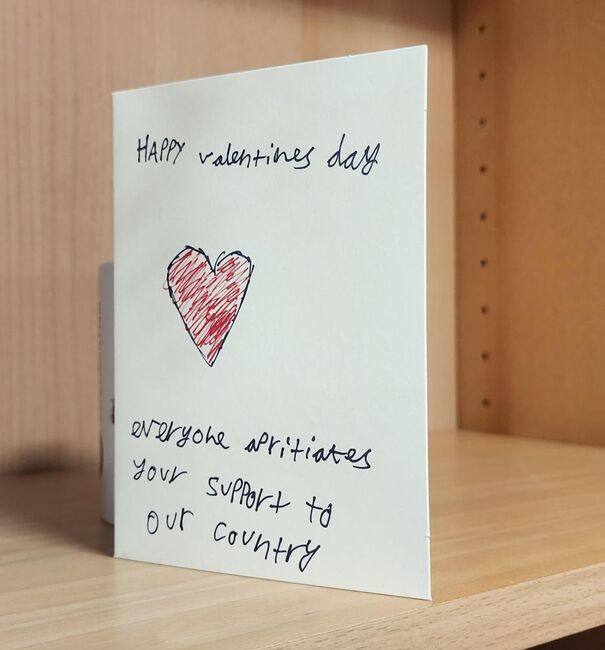 HAPPY valentines day
everyone apritiates
your support to
our country